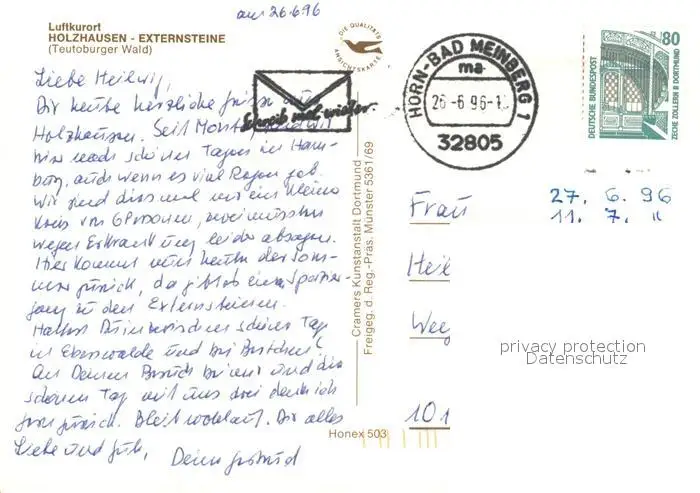 am 26.6.96
Luftkurort
HOLZHAUSEN - EXTERNSTEINE
(Teutoburger Wald)
DIE QUALITÄTS
ANSICHTSKARTE
Liebe Heilwig,
Dir heute herzliche Grüße aus
Holzhausen. Seit Montag sind wir
hier nach schönen Tagen in Ham-
burg, auch wenn es viel Regen gab.
Wir sind diesmal nur ein kleiner
Kreis von 6 Personen, zwei mussten
wegen Erkrankung leider absagen.
Hier kommt nun heute der Som-
mer zurück, da gibt es einen Spazier-
gang zu den Externsteinen.
Hattest Du inzwischen schöne Tage
in Eberswalde und bei
An Deinen Besuch bei mir und die
schönen Tage mit uns drei denke ich
gern zurück. Bleib wohlauf. Dir alles
Liebe und Gute,
Deine Gertrud
Schreib mal wieder.
HORN-BAD MEINBERG 1
ma
26-6 96-1
32805
80
DEUTSCHE BUNDESPOST
ZECHE ZOLLERN II DORTMUND
Cramers Kunstanstalt Dortmund
Freigeg. d. Reg.-Präs. Münster 5361/69
Honex 503
27. 6. 96
11. 7. "
Frau
Heil
Weg
101
privacy protection
Datenschutz